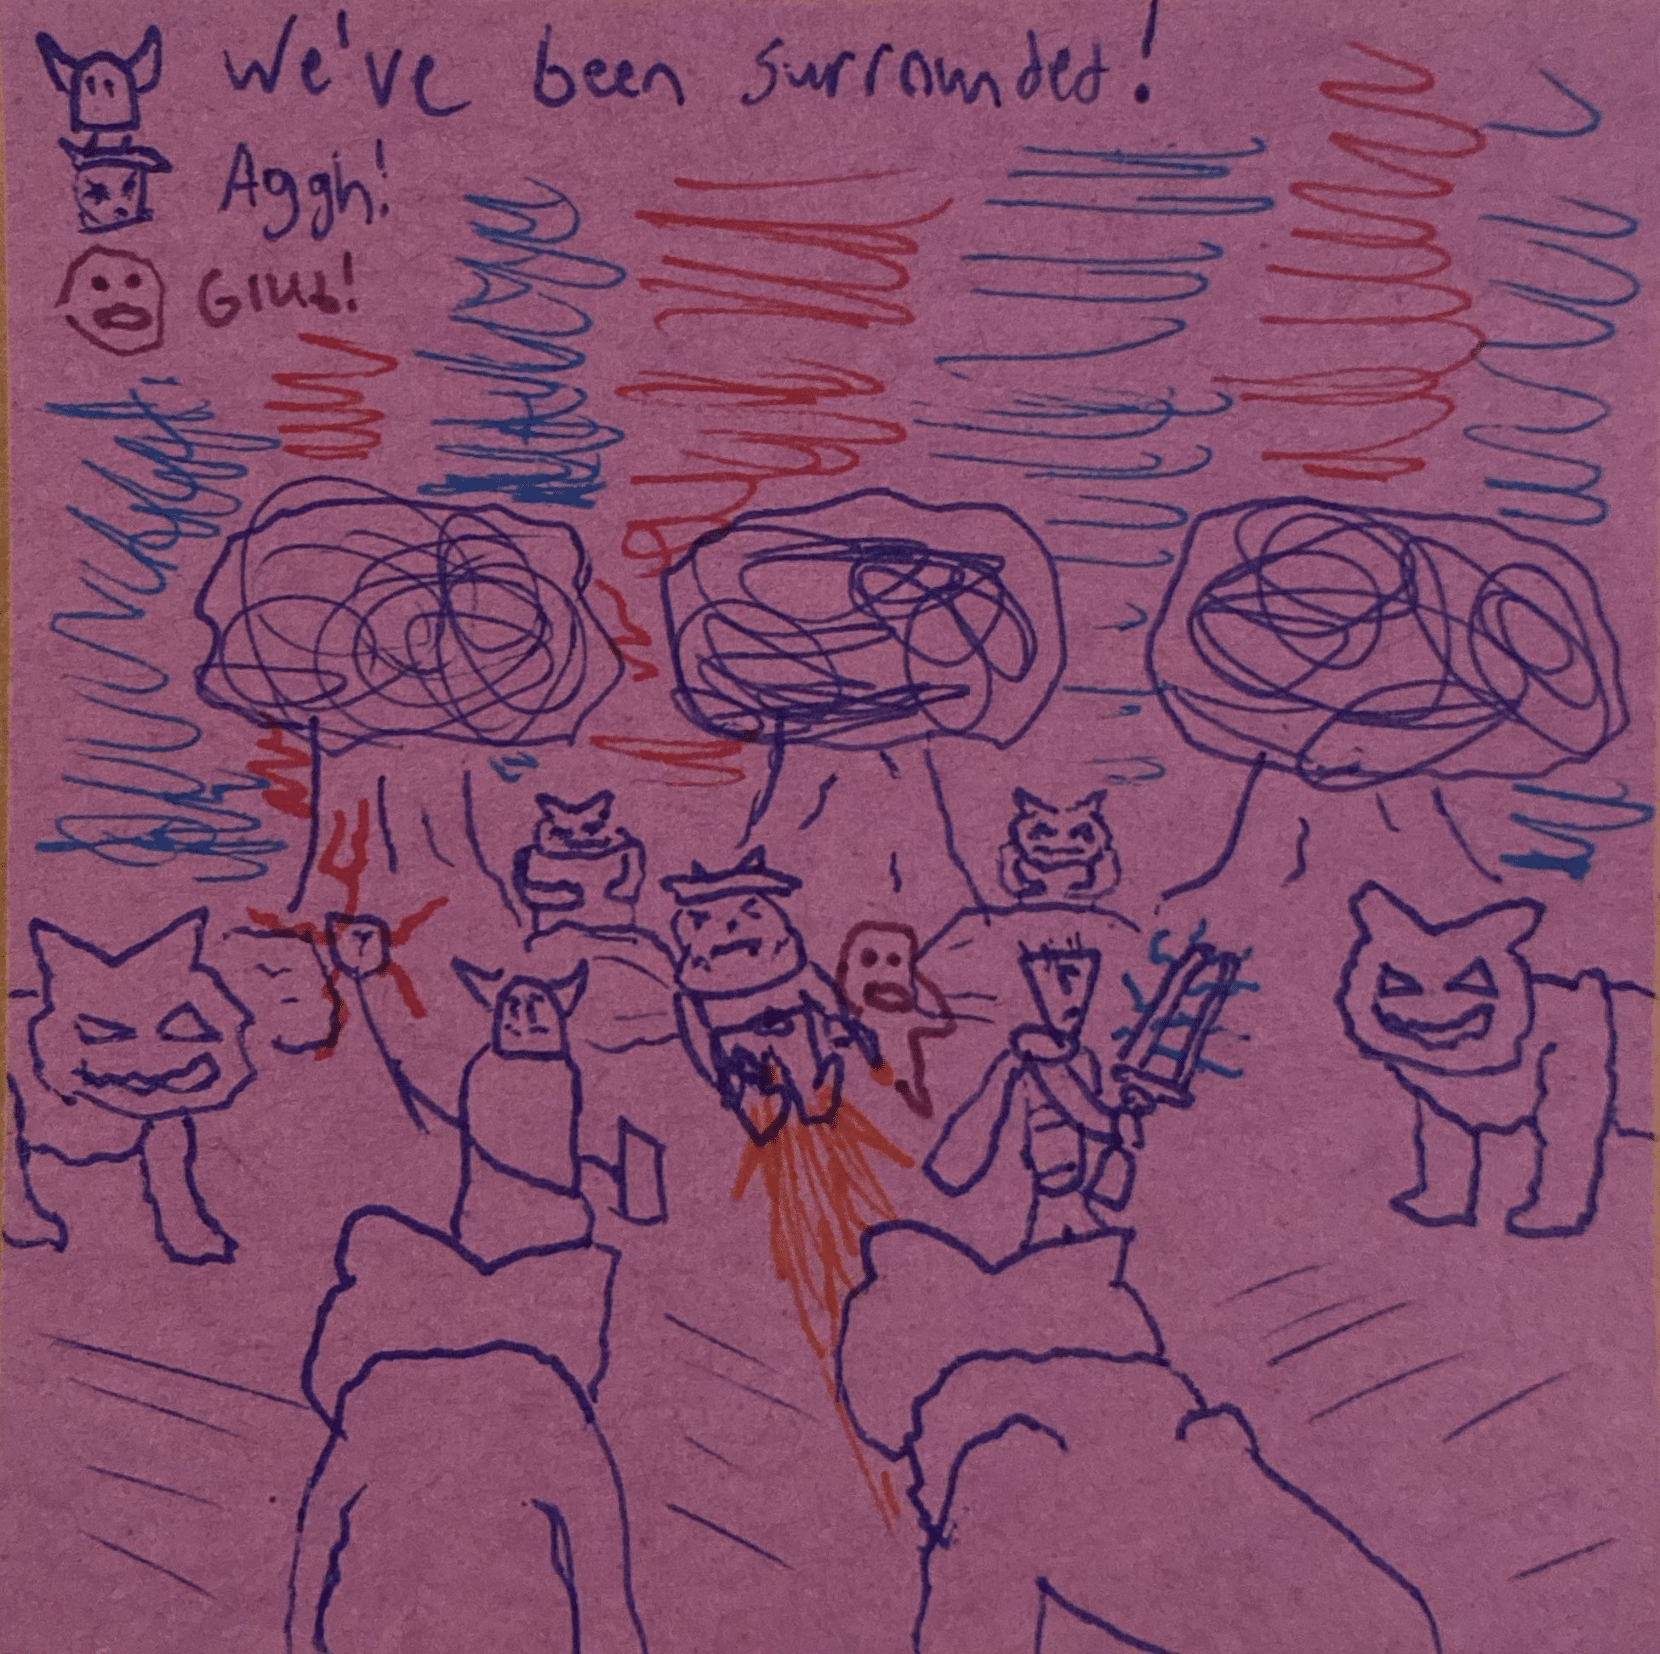 We've been surrounded!
Aggh!
Glub!